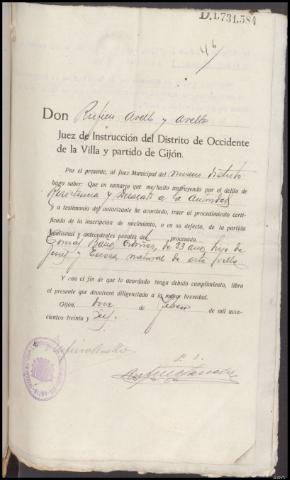 D.1.731.584
46
Don Rufino Avello y Avello
Juez de Instrucción del Distrito de Occidente
de la Villa y partido de Gijón.
Por el presente, al Juez Municipal del mismo distrito
hago saber: Que en sumario que me hallo instruyendo por el delito de
Resistencia y Desacato a la autoridad
y a testimonio del autorizante he acordado, traer al procedimiento certi-
ficado de la inscripción de nacimiento, o en su defecto, de la partida
bautismal y antecedentes penales del procesado
de 23 años, hijo de
José y natural de esta villa
Y con el fin de que lo acordado tenga debido cumplimiento, libro
el presente que devolverá diligenciado a la mayor brevedad.
Gijón, doce de Febrero de mil nove-
cientos treinta y seis.
Rufino Avello